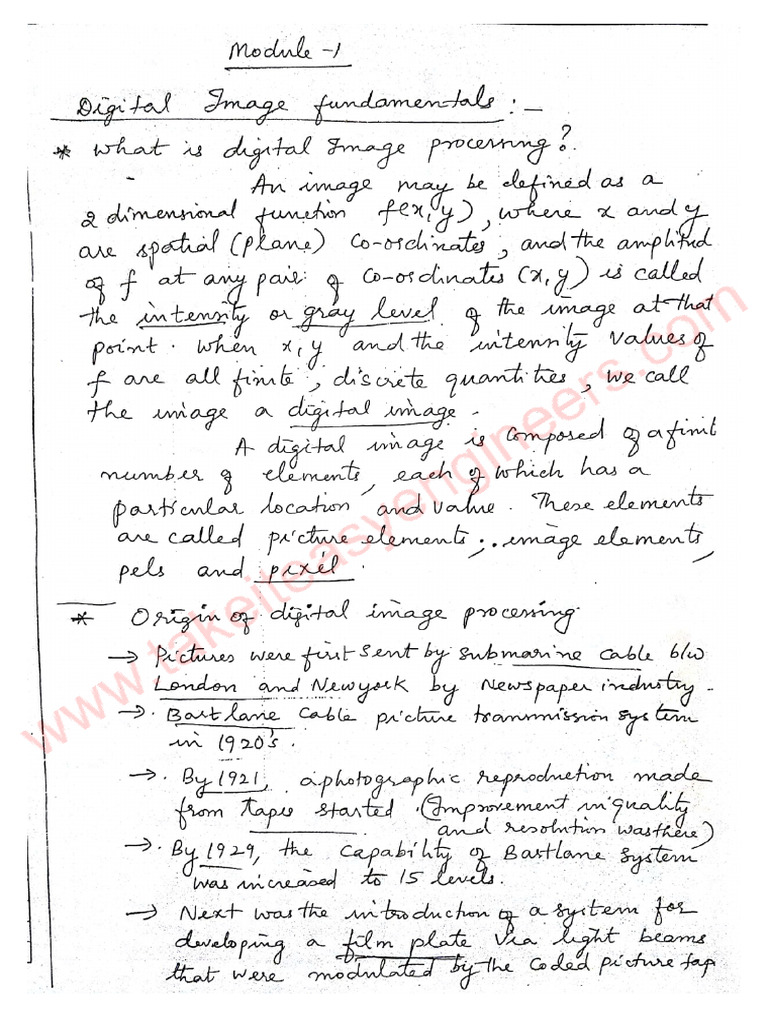 Module-1
Digital Image fundamentals :-
* What is digital Image processing?
An image may be defined as a
2 dimensional function f(x,y), where x and y
are spatial (plane) co-ordinates, and the amplitud
of f at any pair of co-ordinates (x,y) is called
the intensity or gray level of the image at that
point. When x,y and the intensity values of
f are all finite, discrete quantities, we call
the image a digital image.
A digital image is composed of a finit
number of elements, each of which has a
particular location and value. These elements
are called picture elements, image elements,
pels and pixel.
* Origin of digital image processing.
→ Pictures were first sent by submarine cable b/w
London and Newyork by Newspaper industry.
→ Bartlane cable picture transmission system
in 1920's.
→ By 1921, a photographic reproduction made
from tapes started. (Improvement in quality
and resolution was there)
→ By 1929, the capability of Bartlane system
was increased to 15 levels.
→ Next was the introduction of a system for
developing a film plate via light beams
that were modulated by the coded picture tap
www.takeiteasyengineers.com